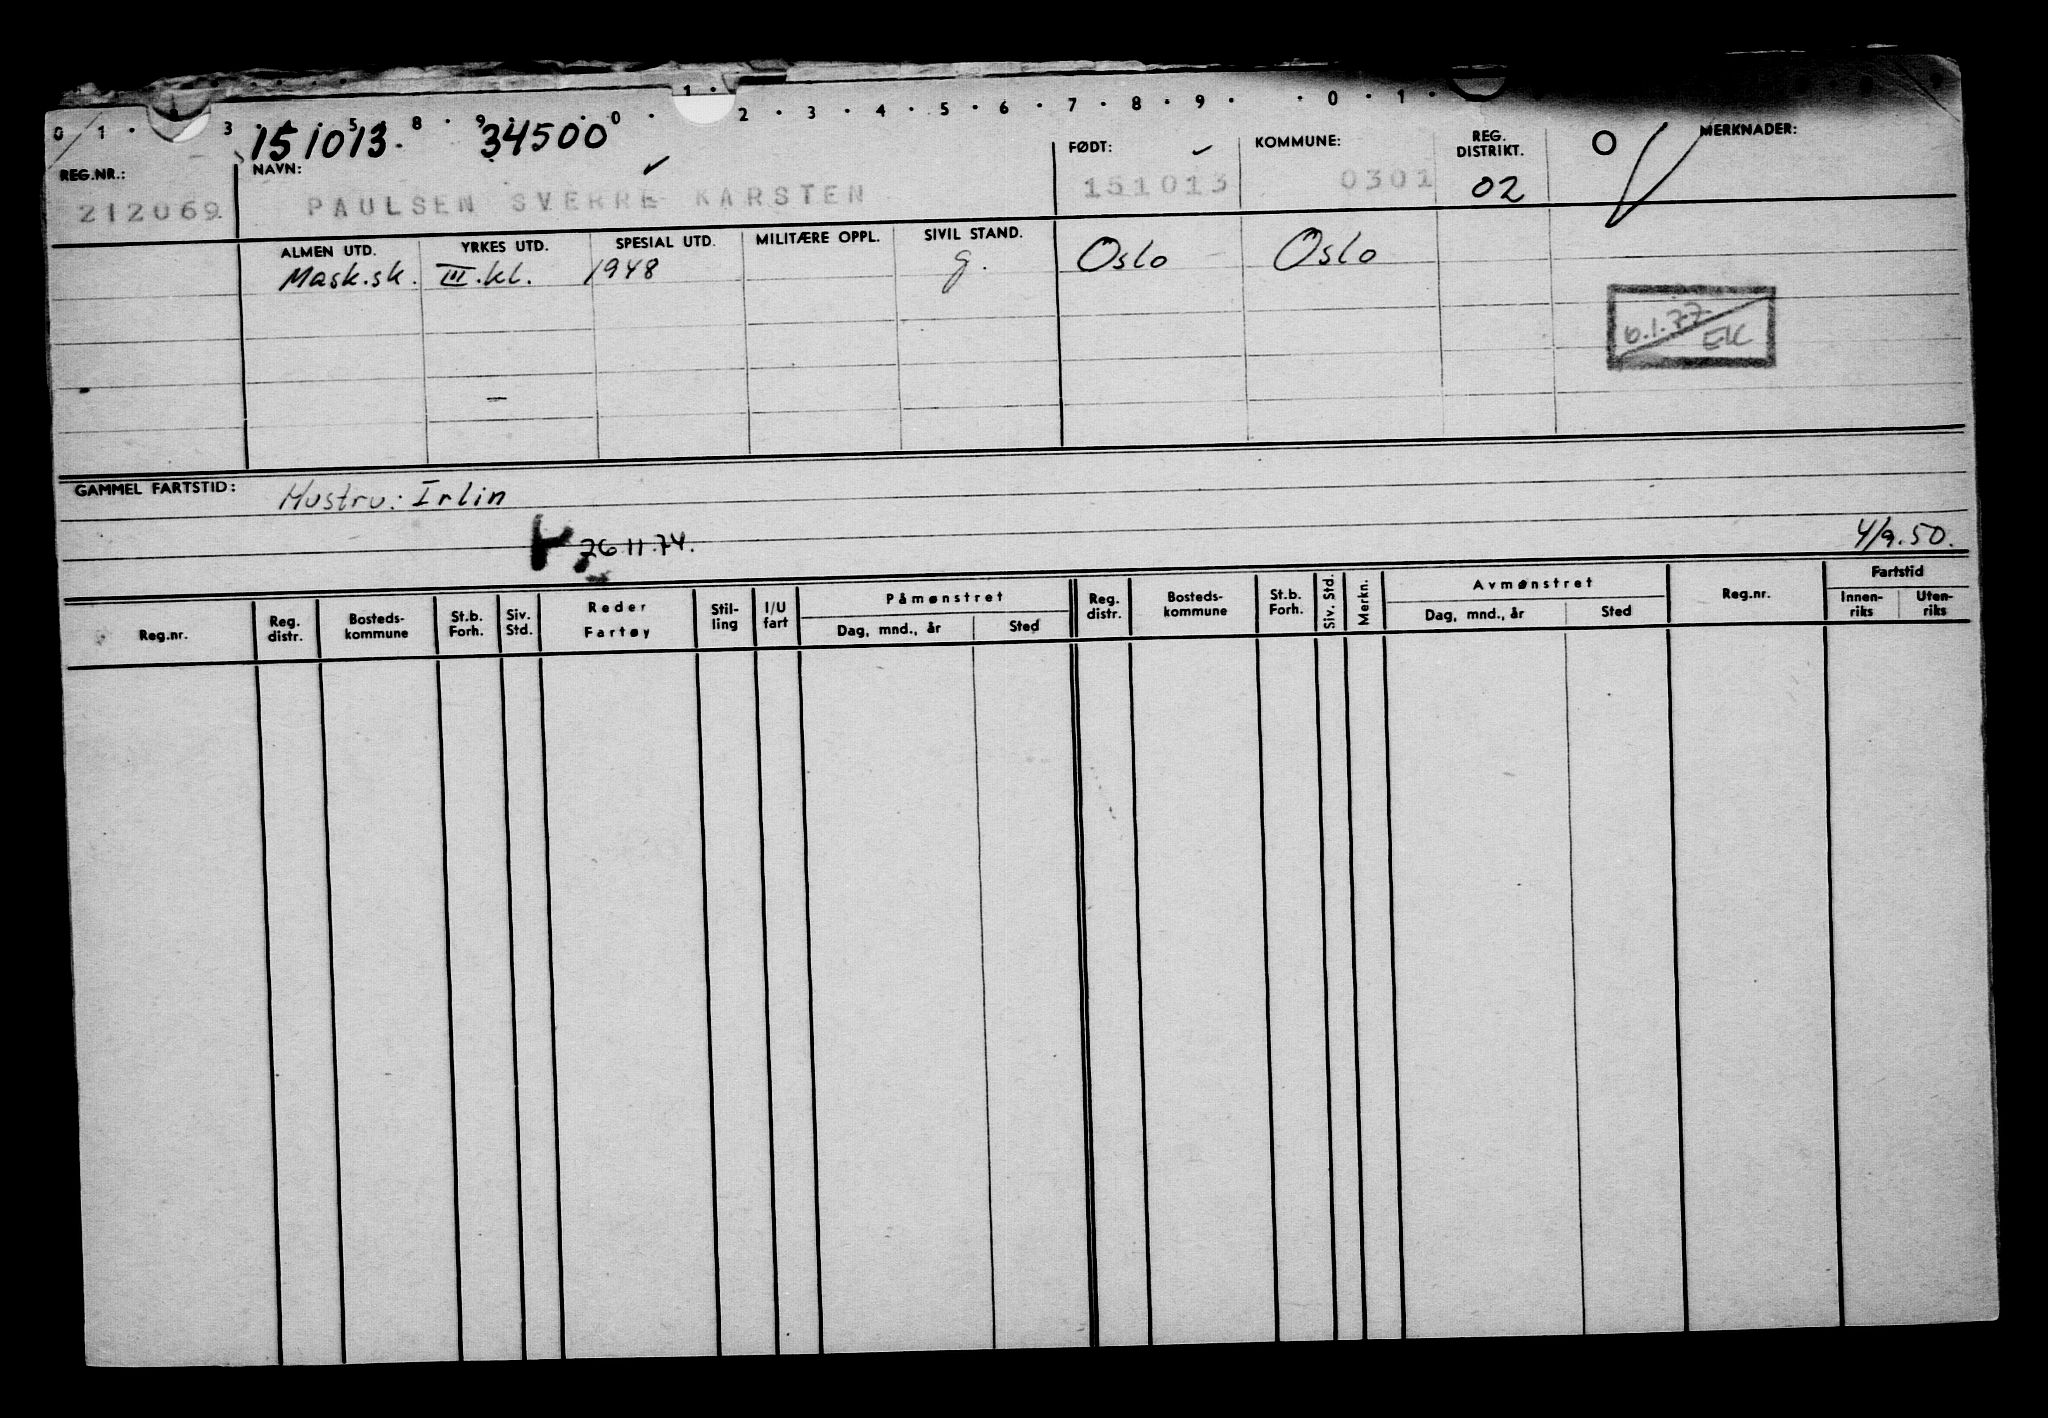 0 1 · 3 · 5 8 · 9 · 0 · 1 · 2 · 3 · 4 · 5 · 6 · 7 · 8 · 9 · · 0 · 1 ·
151013. 34500
REG.NR.: NAVN: FØDT: KOMMUNE: REG. DISTRIKT. MERKNADER:
212069 PAULSEN SVERRE KARSTEN 151013 0301 02
ALMEN UTD. YRKES UTD. SPESIAL UTD. MILITÆRE OPPL. SIVIL STAND.
Mask.sk. III.kl. 1948 g. Oslo Oslo
6.1.77 EK
GAMMEL FARTSTID: Hustru: Irlin
26 11.74. 4/9.50.
Reg.nr. Reg. distr. Bosteds-kommune St.b. Forh. Siv. Std. Reder Fartøy Stil-ling I/U fart Påmønstret Dag, mnd., år Sted Reg. distr. Bosteds-kommune St.b. Forh. Siv. Std. Merkn. Avmønstret Dag, mnd., år Sted Reg.nr. Fartstid Innen-riks Uten-riks